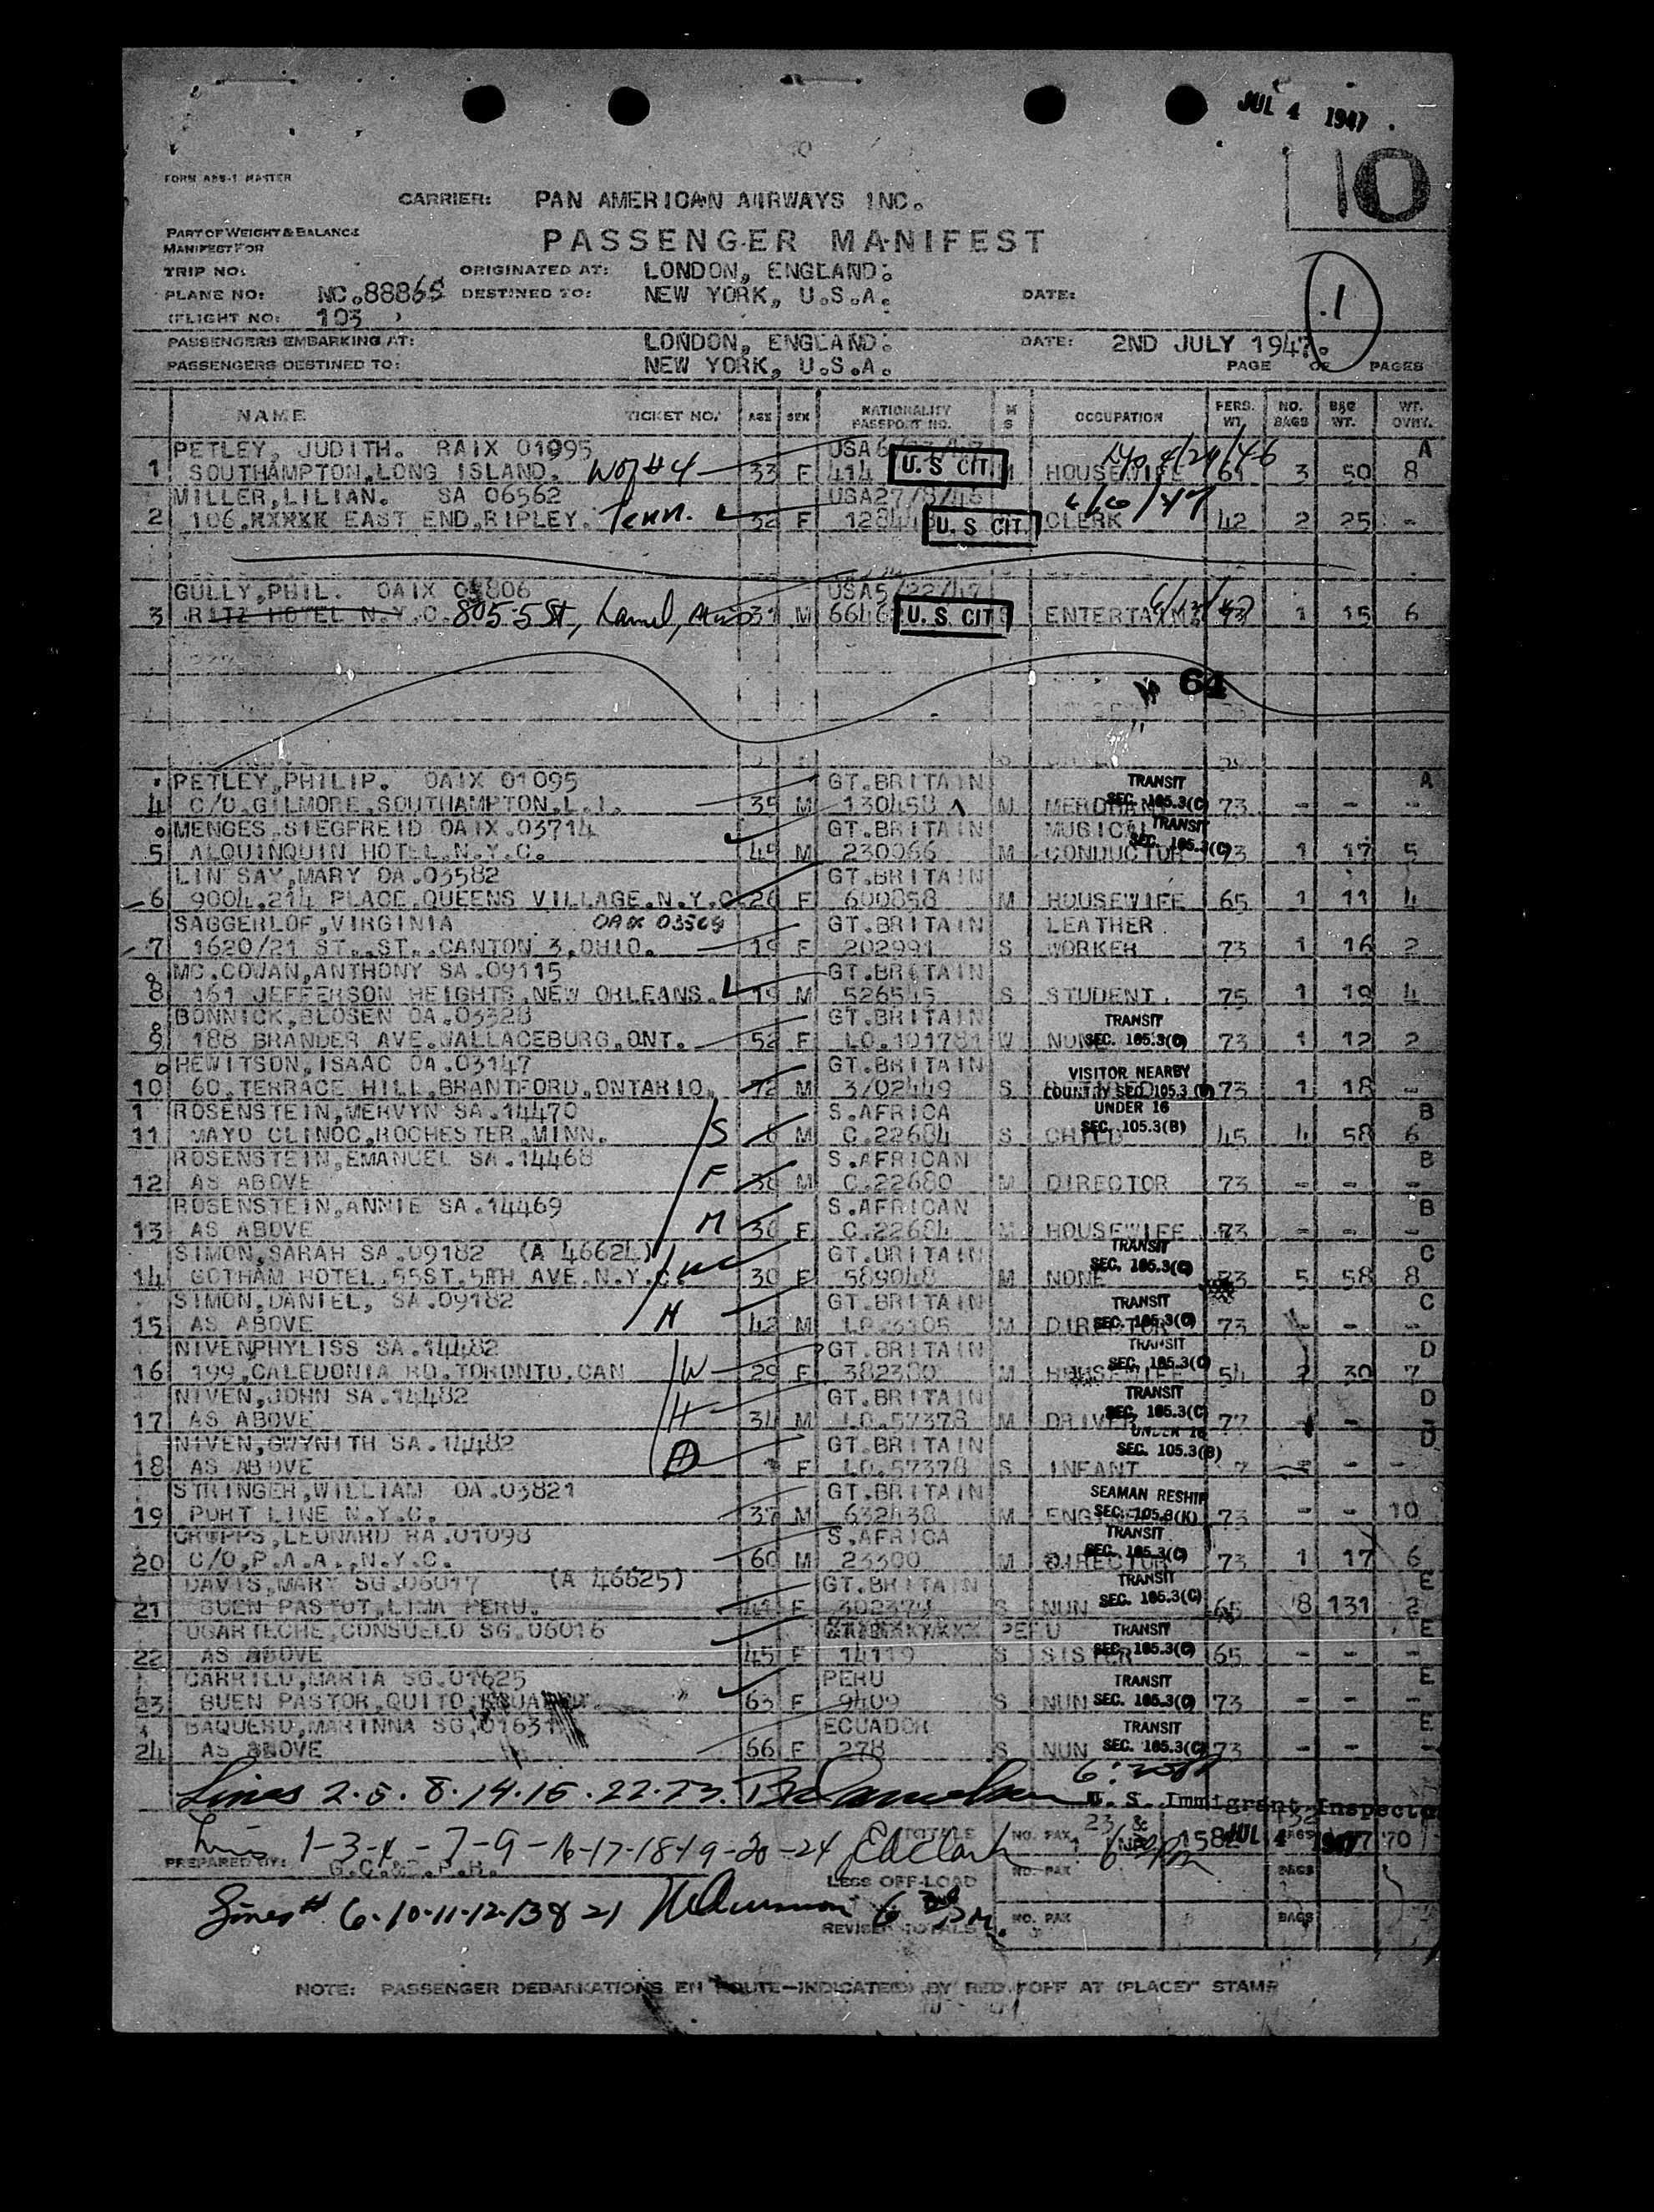 JUL 4 1947
10
FORM ABS-1 MASTER
CARRIER: PAN AMERICAN AIRWAYS INC.
PART OF WEIGHT & BALANCE
MANIFEST FOR
PASSENGER MANIFEST
TRIP NO: ORIGINATED AT: LONDON, ENGLAND:
PLANE NO: NC.88865 DESTINED TO: NEW YORK, U.S.A. DATE:
(FLIGHT NO: 103 )
.1
PASSENGERS EMBARKING AT: LONDON, ENGLAND: DATE: 2ND JULY 1947.
PASSENGERS DESTINED TO: NEW YORK, U.S.A. PAGE OF PAGES
NAME TICKET NO. AGE SEX NATIONALITY PASSPORT NO. M S OCCUPATION PERS. WT. NO. BAGS BAG WT. WT. OVHT.
PETLEY, JUDITH. RAIX 01095 USA A
1 SOUTHAMPTON,LONG ISLAND. 33 F 414 U. S CIT. M HOUSEWIFE 61 3 50 8
MILLER,LILIAN. SA 06562 USA27/8/45 6/6/47
2 106.XXXXX EAST END,RIPLEY. Tenn. 32 F U. S CIT. CLERK 42 2 25 -
GULLY,PHIL. OAIX 03806 USA5/22/47
3 RITZ HOTEL N.Y.C. 805-5 St, 31 M 6646 U. S. CIT 1 15 6
64
PETLEY,PHILIP. OAIX 01095 GT.BRITAIN TRANSIT A
4 C/O.GILMORE,SOUTHAMPTON,L.I. 35 M 130458 M MERCHANT SEC. 105.3(C) 73 - - -
MENGES.SIEGFREID OAIX.03714 GT.BRITAIN MUSICAL TRANSIT
5 ALQUINQUIN HOTEL.N.Y.C. 45 M 230966 M CONDUCTOR SEC. 105.3(C) 73 1 17 5
LIN SAY,MARY OA.03582 GT.BRITAIN
6 9004.214 PLACE.QUEENS VILLAGE.N.Y.C. 26 F 600858 M HOUSEWIFE 65 1 11 4
SAGGERLOF,VIRGINIA OAIX 03509 GT.BRITAIN LEATHER
7 1620/21 ST..ST..CANTON 3.OHIO. 19 F 202991 S WORKER 73 1 16 2
MC.COWAN,ANTHONY SA.09115 GT.BRITAIN
8 161 JEFFERSON HEIGHTS.NEW ORLEANS. 19 M 526545 S STUDENT. 75 1 19 4
BONNICK,BLOSEN OA.03328 GT.BRITAIN TRANSIT
9 188 BRANDER AVE.WALLACEBURG.ONT. 52 F LO.101781 W NONE SEC. 105.3(C) 73 1 12 2
HEWITSON,ISAAC OA.03147 GT.BRITAIN VISITOR NEARBY
10 60.TERRACE HILL,BRANTFORD.ONTARIO. 72 M 3/02449 S COUNTRY SEC. 105.3 73 1 18 -
ROSENSTEIN,MERVYN SA.14470 S.AFRICA UNDER 16 B
11 MAYO CLINOC.ROCHESTER.MINN. S 6 M C.22684 S CHILD SEC. 105.3(B) 45 4 58 6
ROSENSTEIN,EMANUEL SA.14468 S.AFRICAN B
12 AS ABOVE F 38 M C.22680 M DIRECTOR 73 - - -
ROSENSTEIN,ANNIE SA.14469 S.AFRICAN B
13 AS ABOVE M 30 F C.22684 M HOUSEWIFE 73 - - -
SIMON,SARAH SA.09182 (A 46624) GT.BRITAIN TRANSIT C
14 GOTHAM HOTEL.55ST.5TH AVE.N.Y.C. 30 F 589048 M NONE SEC. 105.3(C) 73 5 58 8
SIMON,DANIEL, SA.09182 GT.BRITAIN TRANSIT C
15 AS ABOVE H 42 M M DIRECTOR SEC. 105.3(C) 73 - - -
NIVENPHYLISS SA.14482 GT.BRITAIN TRANSIT D
16 199.CALEDONIA RD.TORONTO.CAN W 29 F 382380 M HOUSEWIFE SEC. 105.3(C) 54 2 30 7
NIVEN,JOHN SA.14482 GT.BRITAIN TRANSIT D
17 AS ABOVE H 34 M LO.57378 M DRIVER SEC. 105.3(C) 77 - - -
NIVEN,GWYNITH SA.14482 GT.BRITAIN UNDER 16 D
18 AS ABOVE D F LO.57378 S INFANT SEC. 105.3(B) 7 - - -
STRINGER,WILLIAM OA.03821 GT.BRITAIN SEAMAN RESHIP
19 PORT LINE N.Y.C. 37 M 632438 M SEC. 105.3(K) 73 - - 10
CRIPPS,LEONARD RA.01098 S.AFRICA TRANSIT
20 C/O.P.A.A.,N.Y.C. 60 M 23390 M DIRECTOR SEC. 105.3(C) 73 1 17 6
DAVIS,MARY SG.06017 (A 46625) GT.BRITAIN TRANSIT E
21 BUEN PASTOT,LIMA PERU. 41 F 302374 S NUN SEC. 105.3(C) 65 8 131 2
UGARTECHE,CONSUELO SG.06016 PERU TRANSIT E
22 AS ABOVE 45 F 14119 S SISTER SEC. 105.3(C) 65 - - -
CARRILO,MARIA SG.01625 PERU TRANSIT E
23 BUEN PASTOR,QUITO,ECUADOR. 63 F 9409 S NUN SEC. 105.3(C) 73 - - -
BAQUERO,MARINNA SG.01631 ECUADOR TRANSIT E
24 AS ABOVE 66 F 278 S NUN SEC. 105.3(C) 73 - - -
Lines 2.5.8.14.15.22.23.
U. S. Immigrant Inspector
Lines 1-3-4-7-9-16-17-18-19-20-24 EdClark TOTALS NO. PAX 23 & 1 INF 1582 JUL 4 1947 BAGS 132 70
PREPARED BY:
LESS OFF-LOAD NO. PAX BAGS
Lines # 6-10-11-12-13 & 21
REVISED TOTALS NO. PAX BAGS
NOTE: PASSENGER DEBARKATIONS EN ROUTE—INDICATED BY RED "OFF AT (PLACE)" STAMP